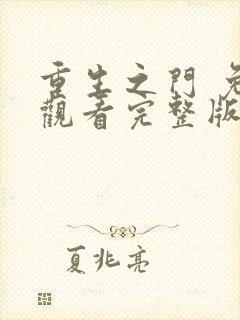 重生之門 免
觀看完整版
夏兆亮